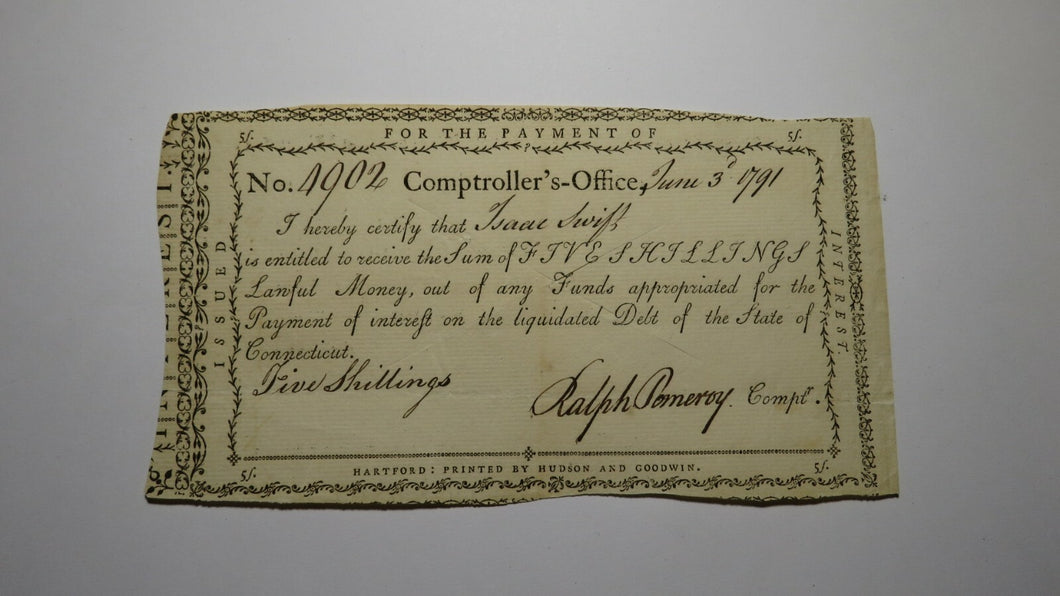 5/. FOR THE PAYMENT OF 5/.
No. 4902 Comptroller's-Office, June 3d 1791
I hereby certify that Isaac Swift
is entitled to receive the Sum of FIVE SHILLINGS
Lawful Money, out of any Funds appropriated for the
Payment of interest on the liquidated Debt of the State of
Connecticut.
Five Shillings
Ralph Pomeroy. Comptr.
5/. HARTFORD: PRINTED BY HUDSON AND GOODWIN. 5/.
ISSUED
INTEREST.